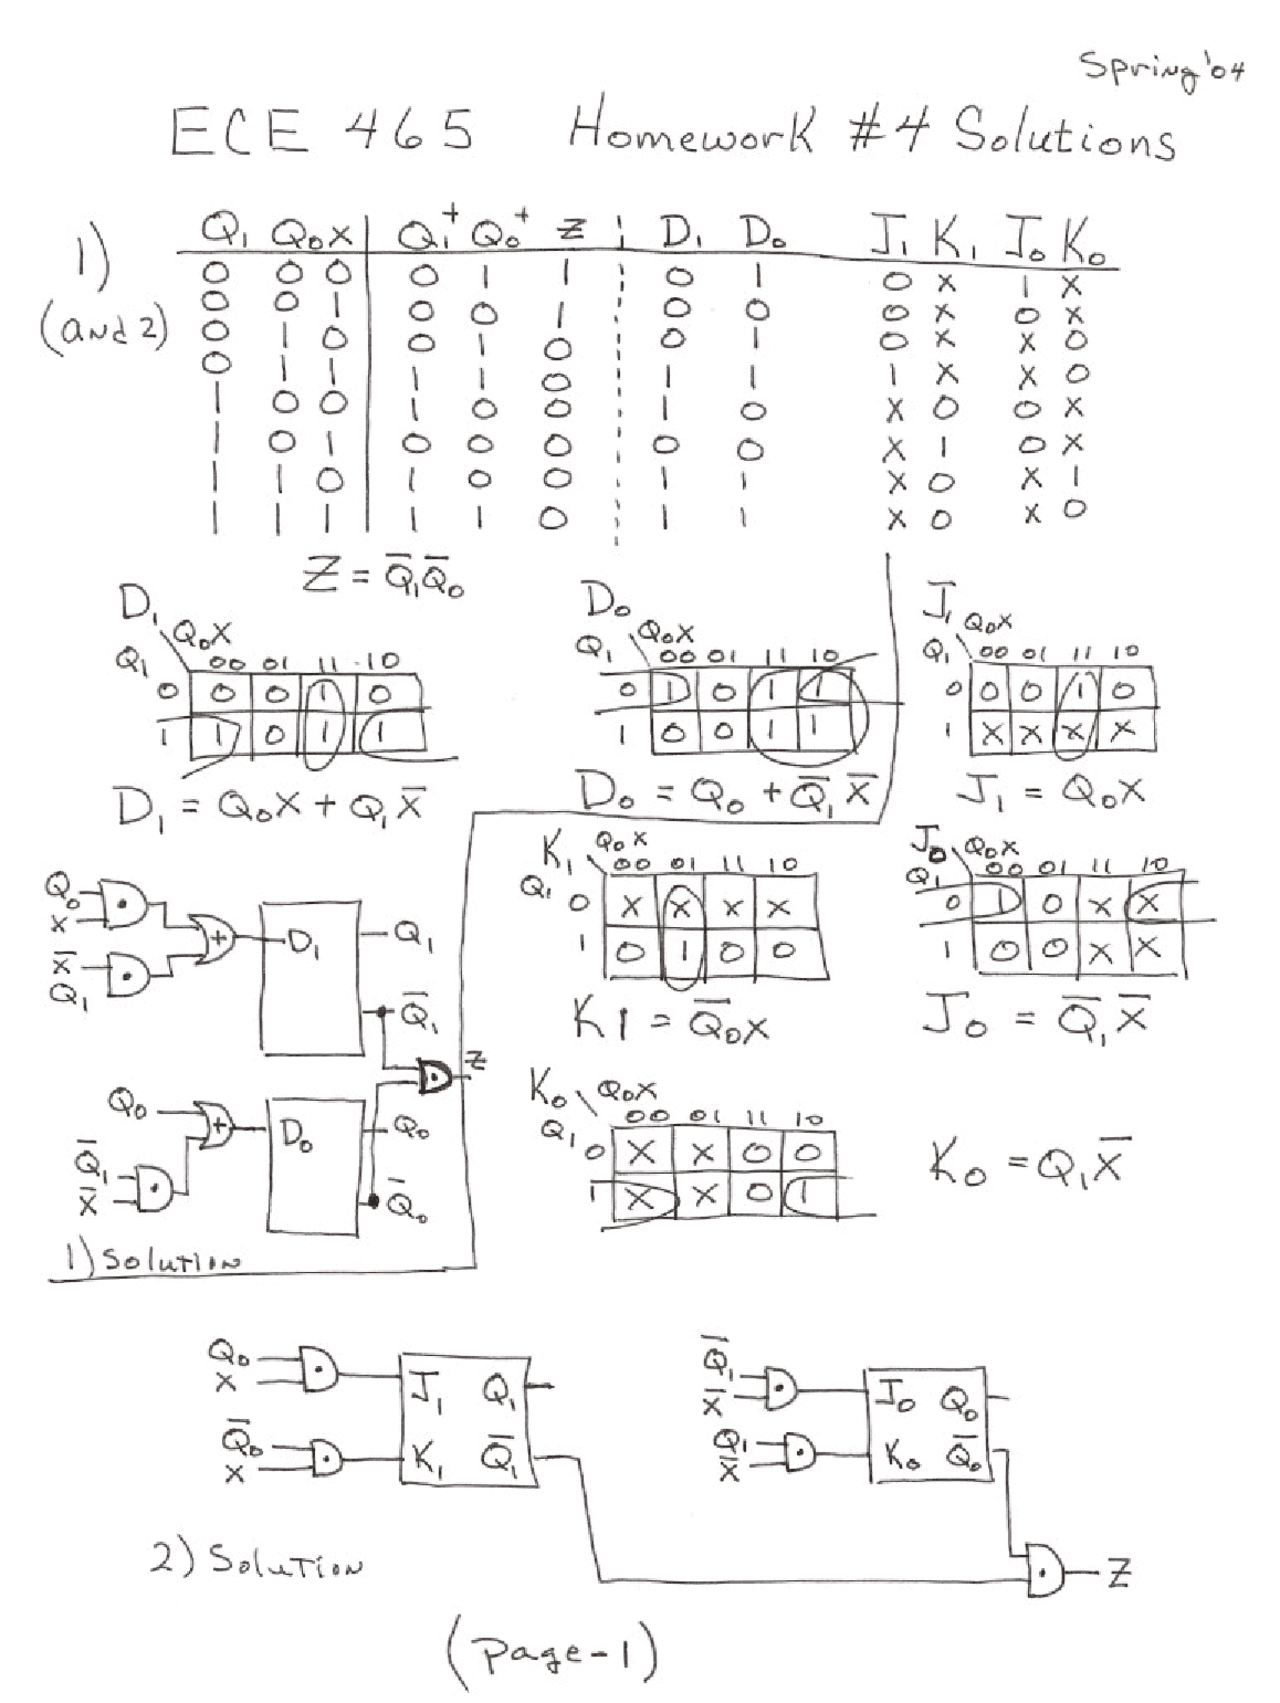 Spring '04
ECE 465 Homework #4 Solutions
1)
(and 2)
Q₁ Q₀ X | Q₁⁺ Q₀⁺ Z ¦ D₁ D₀ J₁ K₁ J₀ K₀
0 0 0 | 0 1 1 ¦ 0 1 0 X 1 X
0 0 1 | 0 0 1 ¦ 0 0 0 X 0 X
0 1 0 | 0 1 0 ¦ 0 1 0 X X 0
0 1 1 | 1 1 0 ¦ 1 1 1 X X 0
1 0 0 | 1 0 0 ¦ 1 0 X 0 0 X
1 0 1 | 0 0 0 ¦ 0 0 X 1 0 X
1 1 0 | 1 0 0 ¦ 1 1 X 0 X 1
1 1 1 | 1 1 0 ¦ 1 1 X 0 X 0
Z = Q̄₁Q̄₀
D₁ \ Q₀X
Q₁ 00 01 11 10
0 0 0 1 0
1 1 0 1 1
D₁ = Q₀X + Q₁X̄
D₀ \ Q₀X
Q₁ 00 01 11 10
0 1 0 1 1
1 0 0 1 1
D₀ = Q₀ + Q̄₁X̄
J₁ \ Q₀X
Q₁ 00 01 11 10
0 0 0 1 0
1 X X X X
J₁ = Q₀X
K₁ \ Q₀X
Q₁ 00 01 11 10
0 X X X X
1 0 1 0 0
K1 = Q̄₀X
J₀ \ Q₀X
Q₁ 00 01 11 10
0 1 0 X X
1 0 0 X X
J₀ = Q̄₁X̄
K₀ \ Q₀X
Q₁ 00 01 11 10
0 X X 0 0
1 X X 0 1
K₀ = Q₁X̄
Q₀
X
X̄
Q₁
+
D₁
Q₁
Q̄₁
Z
Q₀
Q̄₁
X̄
+
D₀
Q₀
Q̄₀
1) Solution
Q₀
X
Q̄₀
X
J₁ Q₁
K₁ Q̄₁
Q̄₁
X̄
Q₁
X̄
J₀ Q₀
K₀ Q̄₀
Z
2) Solution
(page-1)